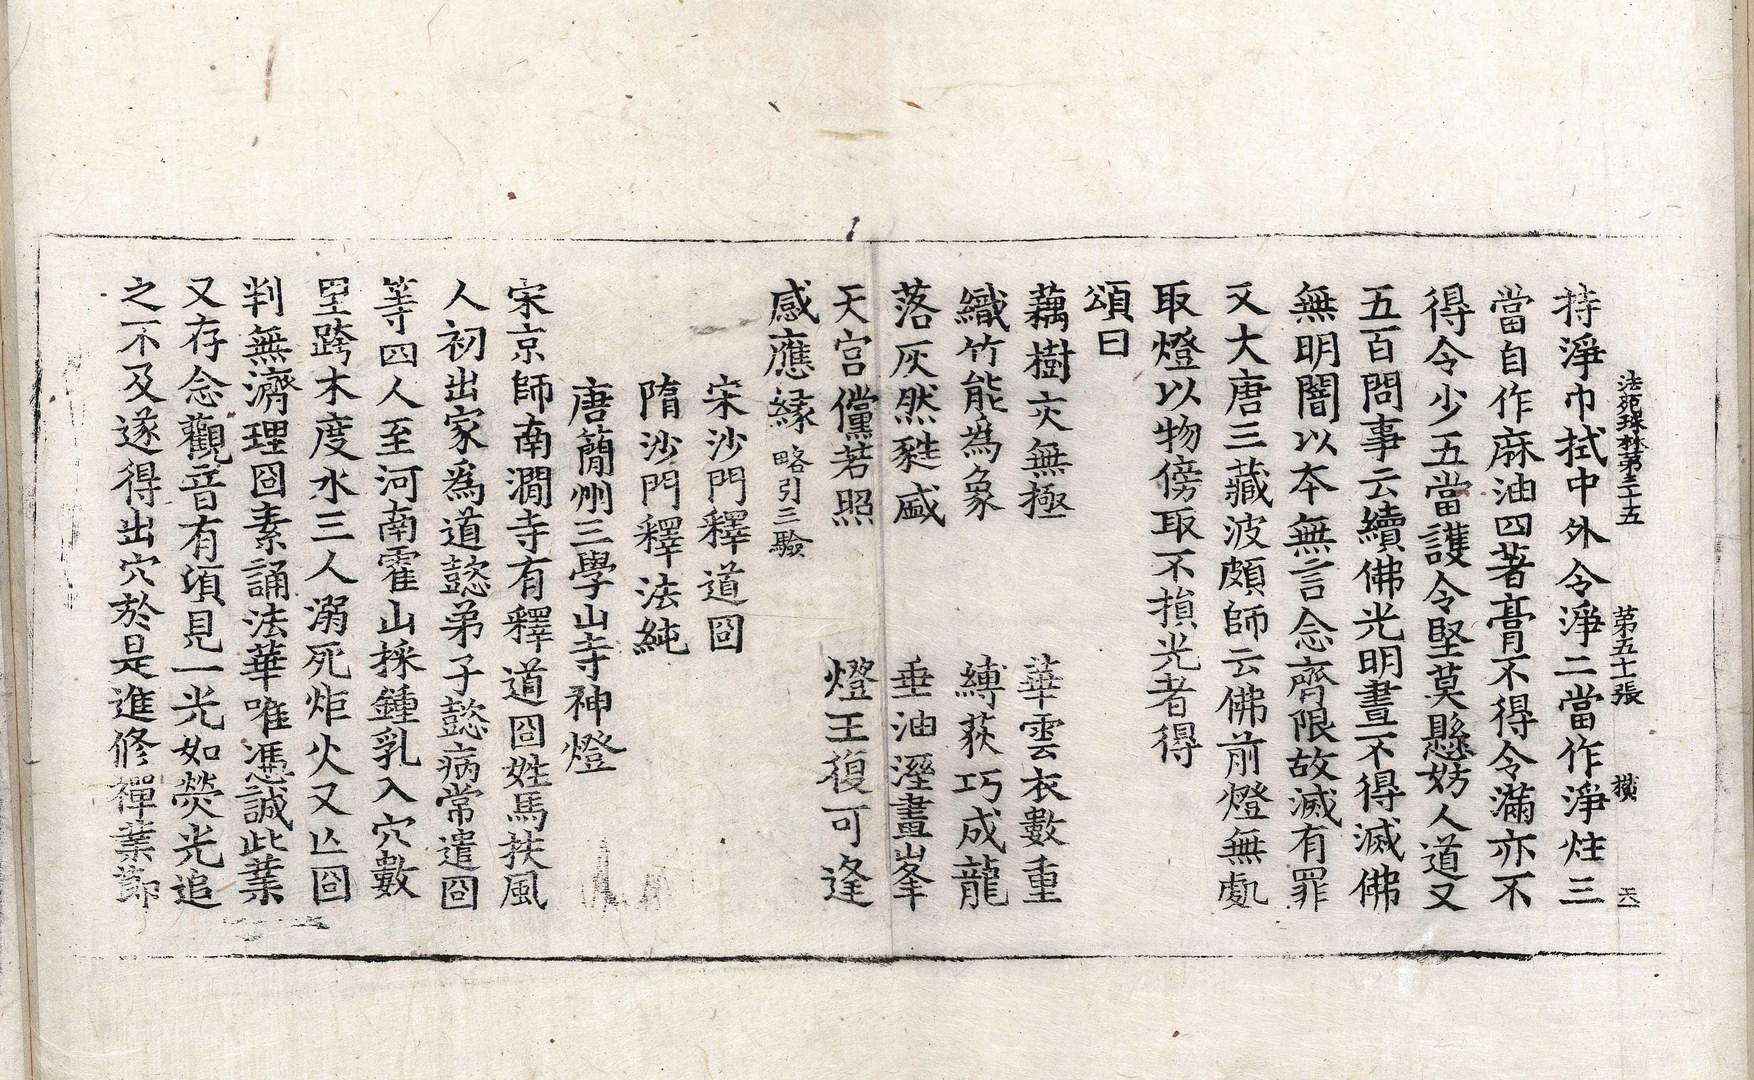 法苑珠林第三十五　第五十張　橫
持淨巾拭中外令淨二當作淨炷三
當自作麻油四著膏不得令滿亦不
得令少五當護令堅莫懸妨人道又
五百問事云續佛光明晝不得滅佛
無明闇以本無言念齊限故滅有罪
又大唐三藏波頗師云佛前燈無處
取燈以物傍取不損光者得
頌曰
藕樹交無極　華雲衣數重
織竹能為象　縛荻巧成龍
落灰然蘂盛　垂油溼畫峯
天宮儻若照　燈王復可逢
感應緣略引三驗
宋沙門釋道冏
隋沙門釋法純
唐蕳州三學山寺神燈
宋京師南澗寺有釋道冏姓馬扶風
人初出家為道懿弟子懿病常遣冏
等四人至河南霍山採鍾乳入穴數
里跨木度水三人溺死炬火又亡冏
判無濟理冏素誦法華唯憑誠此業
又存念觀音有須見一光如熒光追
之不及遂得出穴於是進修禪業節